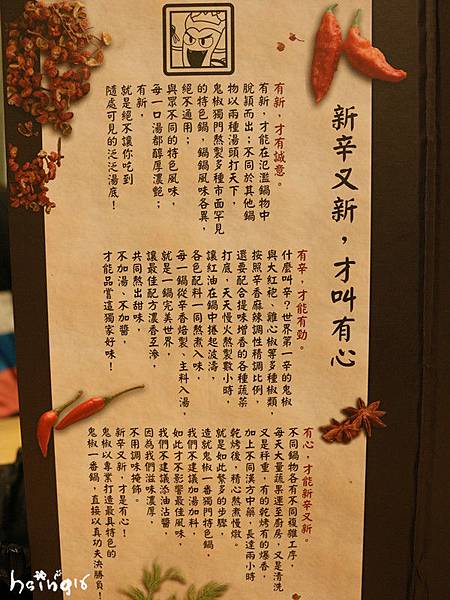 新辛又新，才叫有心
有新，才有誠意。
有新，才能在氾濫鍋物中
脫穎而出；不同於其他鍋
物以兩種湯頭打天下，
鬼椒獨門熬製多種市面罕見
的特色鍋，鍋鍋風味各異，
絕不通用；
與眾不同的特色風味，
每一口湯都醇厚濃艷；
有新，
就是絕不讓你吃到
隨處可見的泛泛湯底！
有辛，才能有勁。
什麼叫辛？世界第一辛的鬼椒
與大紅袍、雞心椒等多種椒類，
按照辛香麻辣調性精調比例，
還要配合提味增香的各種蔬菜
打底，天天慢火熬製數小時，
讓紅油在鍋中捲起波濤，
各色配料一同熬煮入味，
每一鍋從辛香焙製、主料入湯，
就是一鍋完美世界，
讓最佳配方濃香互滲，
共同熬出甜味，
不加湯、不加醬，
才能品嘗這獨家好味！
有心，才能新辛又新。
不同鍋物各有不同複雜工序，
每天大量蔬果運至廚房，又是清洗
又是秤重，有的乾烤有的爆香，
加上不同漢方中藥，長達兩小時
乾烤後，精心熬煮慢燉。
就是如此繁多的步驟，
造就鬼椒一番獨門特色鍋，
我們不建議加湯加料，
如此才不影響最佳風味，
我們不建議添油沾醬，
因為我們滋味濃厚，
不用調味掩飾。
新辛又新，才是有心！
鬼椒以專業打造最具特色的
鬼椒一番鍋，直接以真功夫決勝負！
hsing16